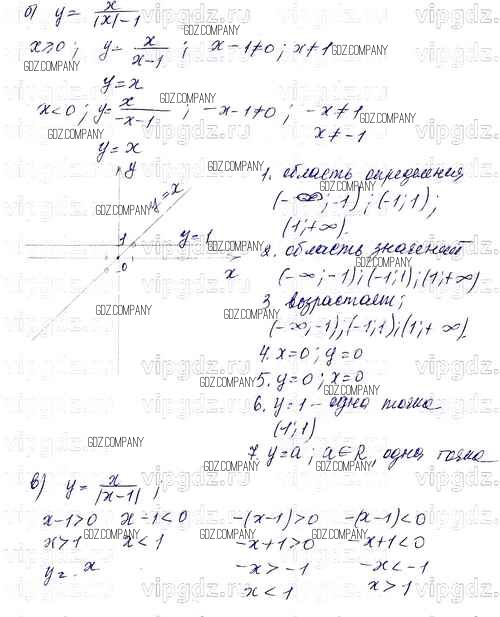 б) y = x/(|x|-1)
x≥0; y = x/(x-1); x-1≠0; x≠1
y = x
x<0; y = x/(-x-1); -x-1≠0; -x≠1
x≠-1
y = x
y
y = x
1
y = 1
0
x
1. область определения
(-∞; -1); (-1; 1);
(1; +∞).
2. область значений
(-∞; -1); (-1; 1); (1; +∞)
3. возрастает;
(-∞; -1); (-1; 1); (1; +∞).
4. x=0; y=0
5. y=0; x=0
6. y=1 - одна точка
(1; 1)
7. y=a; a∈R, одна точка
в) y = x/|x-1|;
x-1>0 x-1<0 -(x-1)>0 -(x-1)<0
x>1 x<1 -x+1>0 -x+1<0
y = x -x>-1 -x<-1
x<1 x>1
GDZ.COMPANY
vipgdz.ru